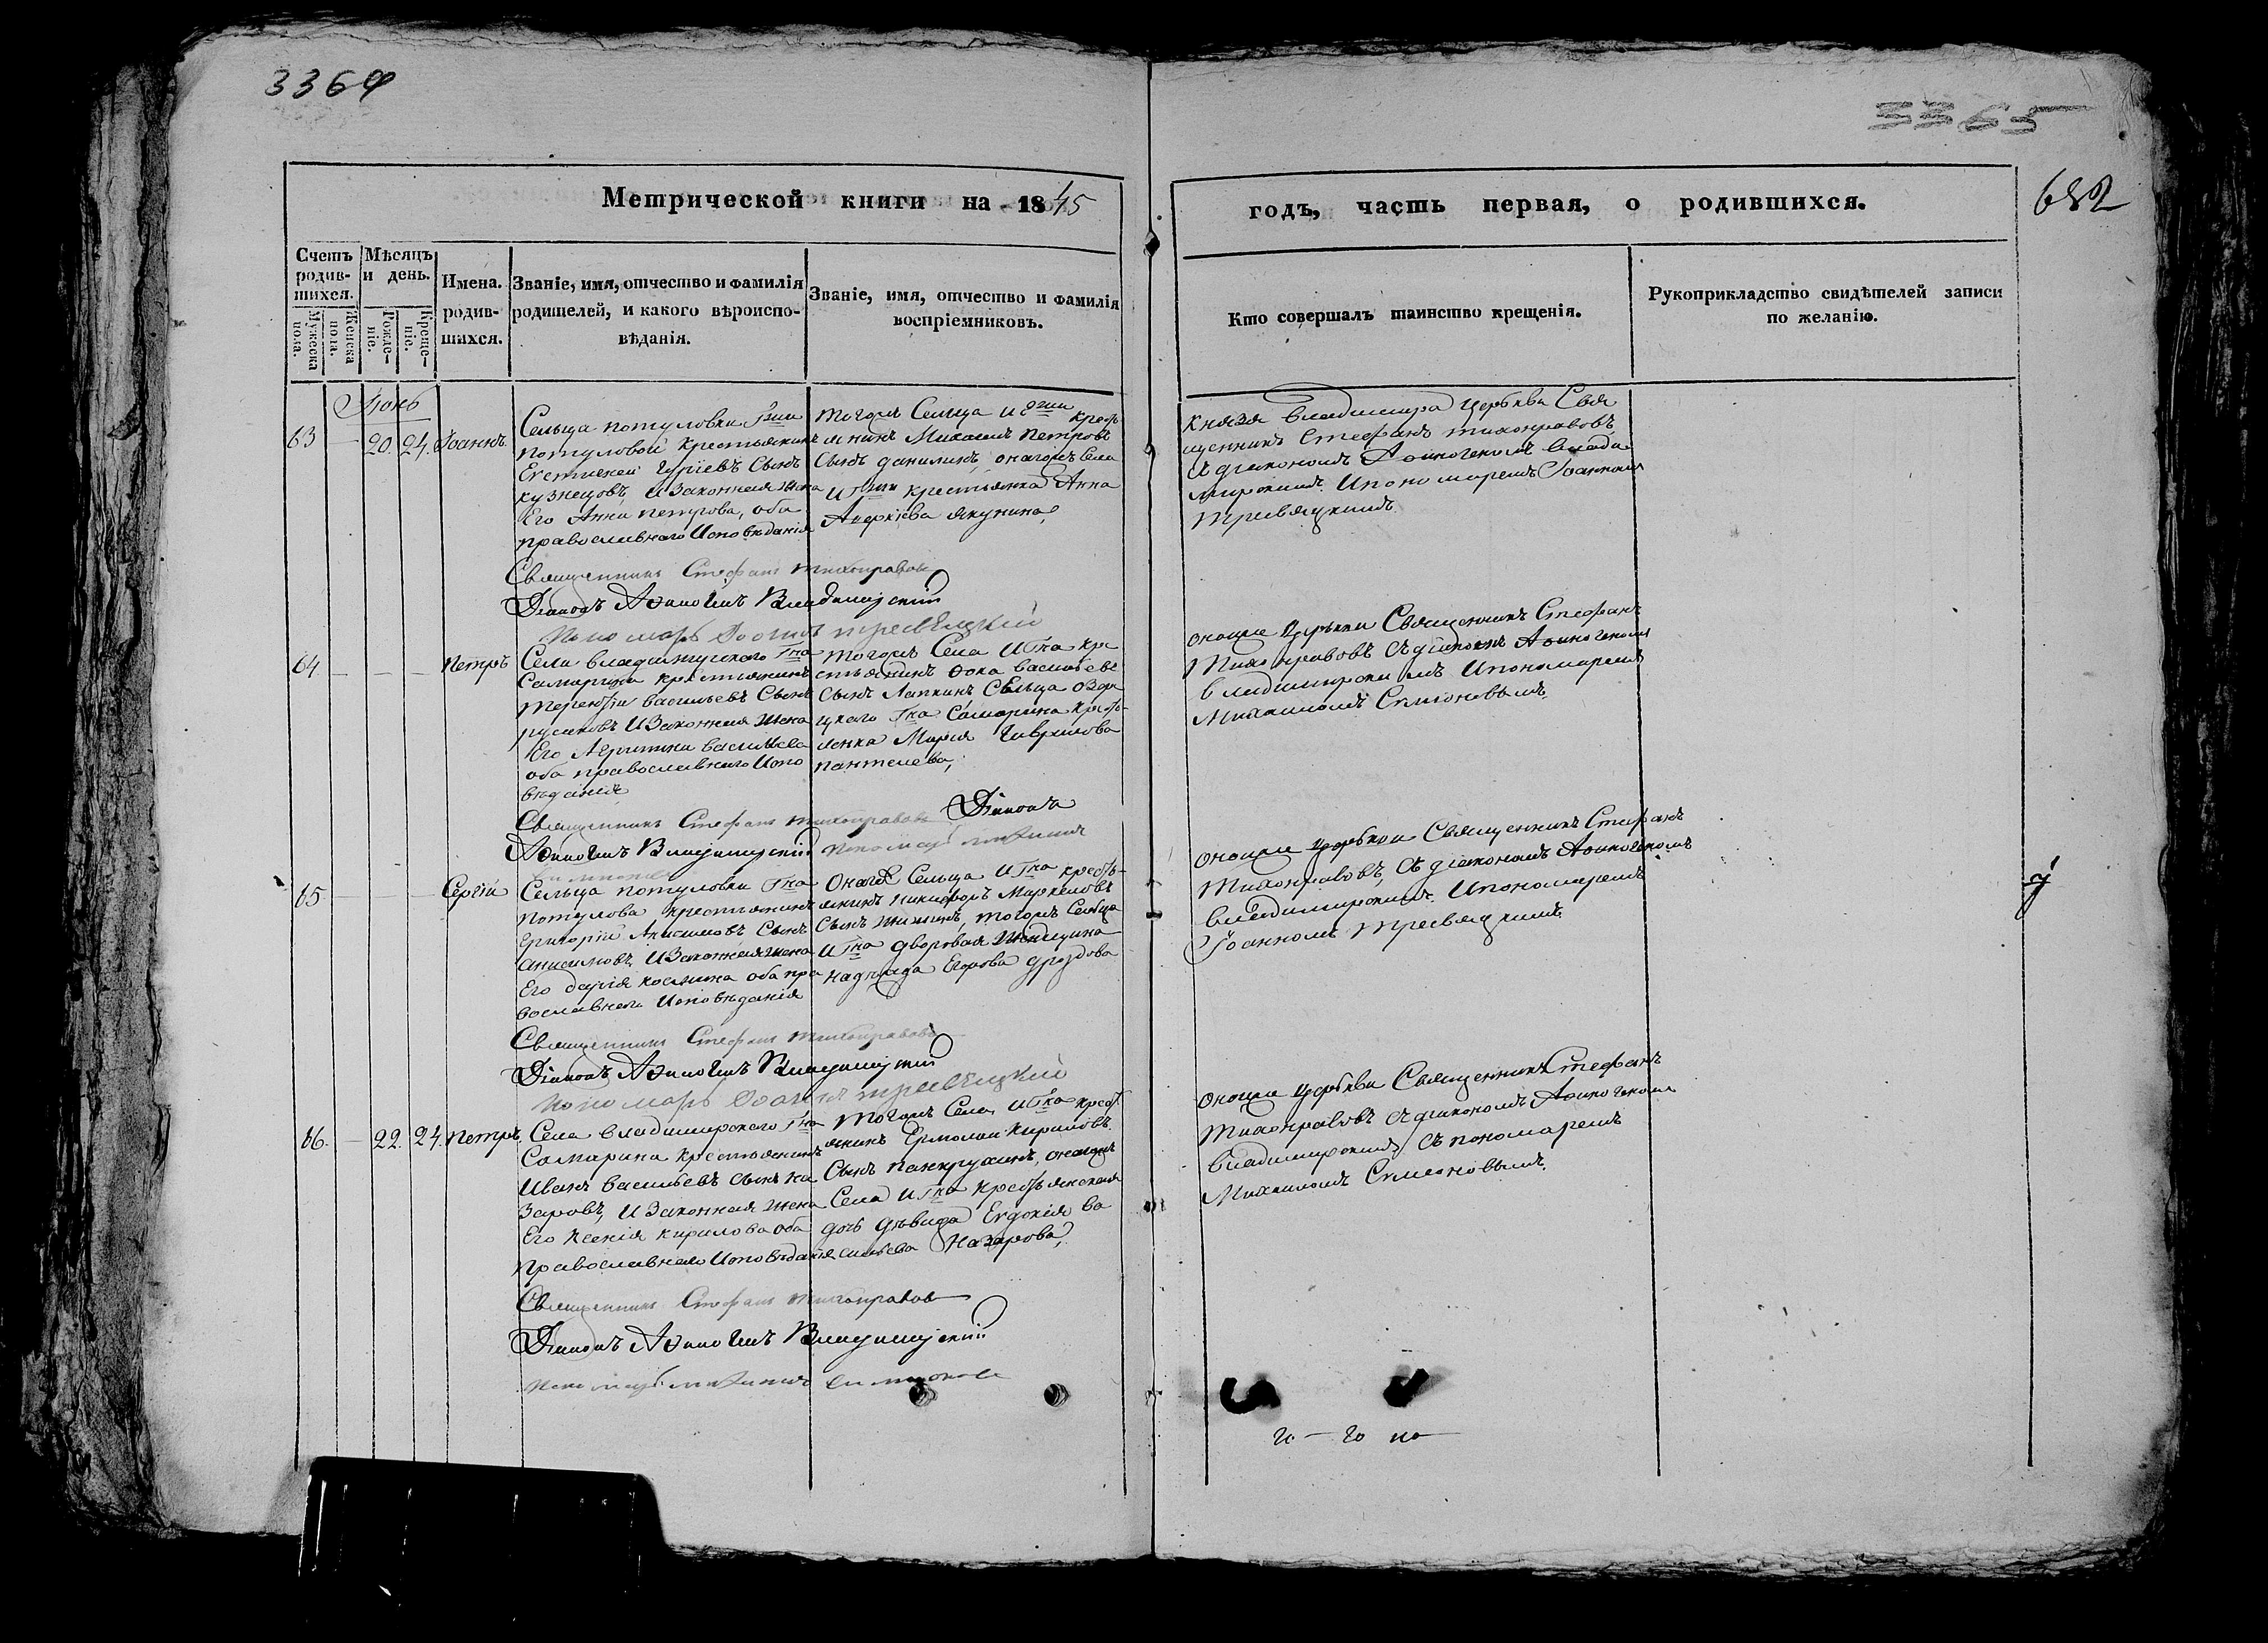 3364
3365
682
Метрической книги на 1845
годъ, часть первая, о родившихся.
Счетъ родив-шихся.
Мужеска пола.
Женска пола.
Мѣсяцъ и день.
Рожде-ніе.
Креще-ніе.
Имена. родив-шихся.
Званіе, имя, отчество и фамилія
родителей, и какого вѣроиспо-
вѣданія.
Званіе, имя, отчество и фамилія
воспріемниковъ.
Кто совершалъ таинство крещенія.
Рукоприкладство свидѣтелей записи
по желанію.
Іюнь
63 20. 24. Іоаннъ.
Сельца потуловки Гжи
потуловой крестьянинъ
Гуріевъ Сынъ
кузнецовъ, И Законная жена
Его Анна петрова, оба
православнаго Исповѣданія
тогожъ Сельца И Гжи кресть
янинъ Михаилъ петровъ
Сынъ данилинъ, онагожъ Села
И Гжи крестьянка Анна
якунина,
Князя владимира Церкви Свя
щенникъ Стефанъ тихонравовъ
Съ діакономъ Аѳиногеномъ влади
мирскимъ. И пономаремъ Іоанномъ
тресвяцкимъ
Священникъ Стефанъ тихонравовъ
Діаконъ Аѳиногенъ Владимирскій
пономарь Іоаннъ тресвяцкій
64 Петръ
Села владимирскаго Гна
Самарина крестьянинъ
терентій васильевъ Сынъ
русаковъ И Законная жена
Его васильева
оба православнаго Испо
вѣданія
тогожъ Села И Гна кре
стьянинъ Фока васильевъ
Сынъ Лапкинъ Сельца Озер
цкаго Гна Самарина кресть-
янка Марія Гаврилова
пантелева,
Оноиже Церкви Священникъ Стефанъ
Тихонравовъ Съ діакономъ Аѳиногеномъ
владимирскимъ И пономаремъ
Михаиломъ Симоновымъ.
Священникъ Стефанъ тихонравовъ Діаконъ
Аѳиногенъ Владимирскій пономарь михаилъ
65 Сергій
Сельца потуловки Гна
потулова крестьянинъ
Григорій Анисимовъ Сынъ
Анисимовъ, И Законная жена
Его дарія косьмина оба пра
вославнаго Исповѣданія
Онагожъ Сельца И Гна кресть-
янинъ никифоръ Маркеловъ
Сынъ тогожъ Сельца
И Гна дворовая женщина
надежда Егорова дроздова
Оноиже церкви Священникъ Стефанъ
тихонравовъ, Съ діакономъ Аѳиногеномъ
владимирскимъ И пономаремъ
Іоанномъ тресвяцкимъ
Священникъ Стефанъ тихонравовъ
Діаконъ Аѳиногенъ Владимирскій
пономарь Іоаннъ тресвяцкій
66. 22. 24. Петръ.
Села владимирскаго Гна
Самарина крестьянинъ
Иванъ васильевъ сынъ На
заровъ, И Законная жена
Его Ксенія кирилова оба
православнаго Исповѣданія
тогожъ Села И Гна кресть
янинъ Ермолаи кириловъ
Сынъ панкрухинъ, онагожъ
Села И Гна крестьянская
дочь дѣвица Евдокія ва
сильева Назарова,
Оноиже церкви Священникъ Стефанъ
тихонравовъ Съ діакономъ Аѳиногеномъ
владимирскимъ Съ пономаремъ
Михаиломъ Симоновымъ.
Священникъ Стефанъ тихонравовъ
Діаконъ Аѳиногенъ Владимирскій
пономарь михаилъ симоновъ